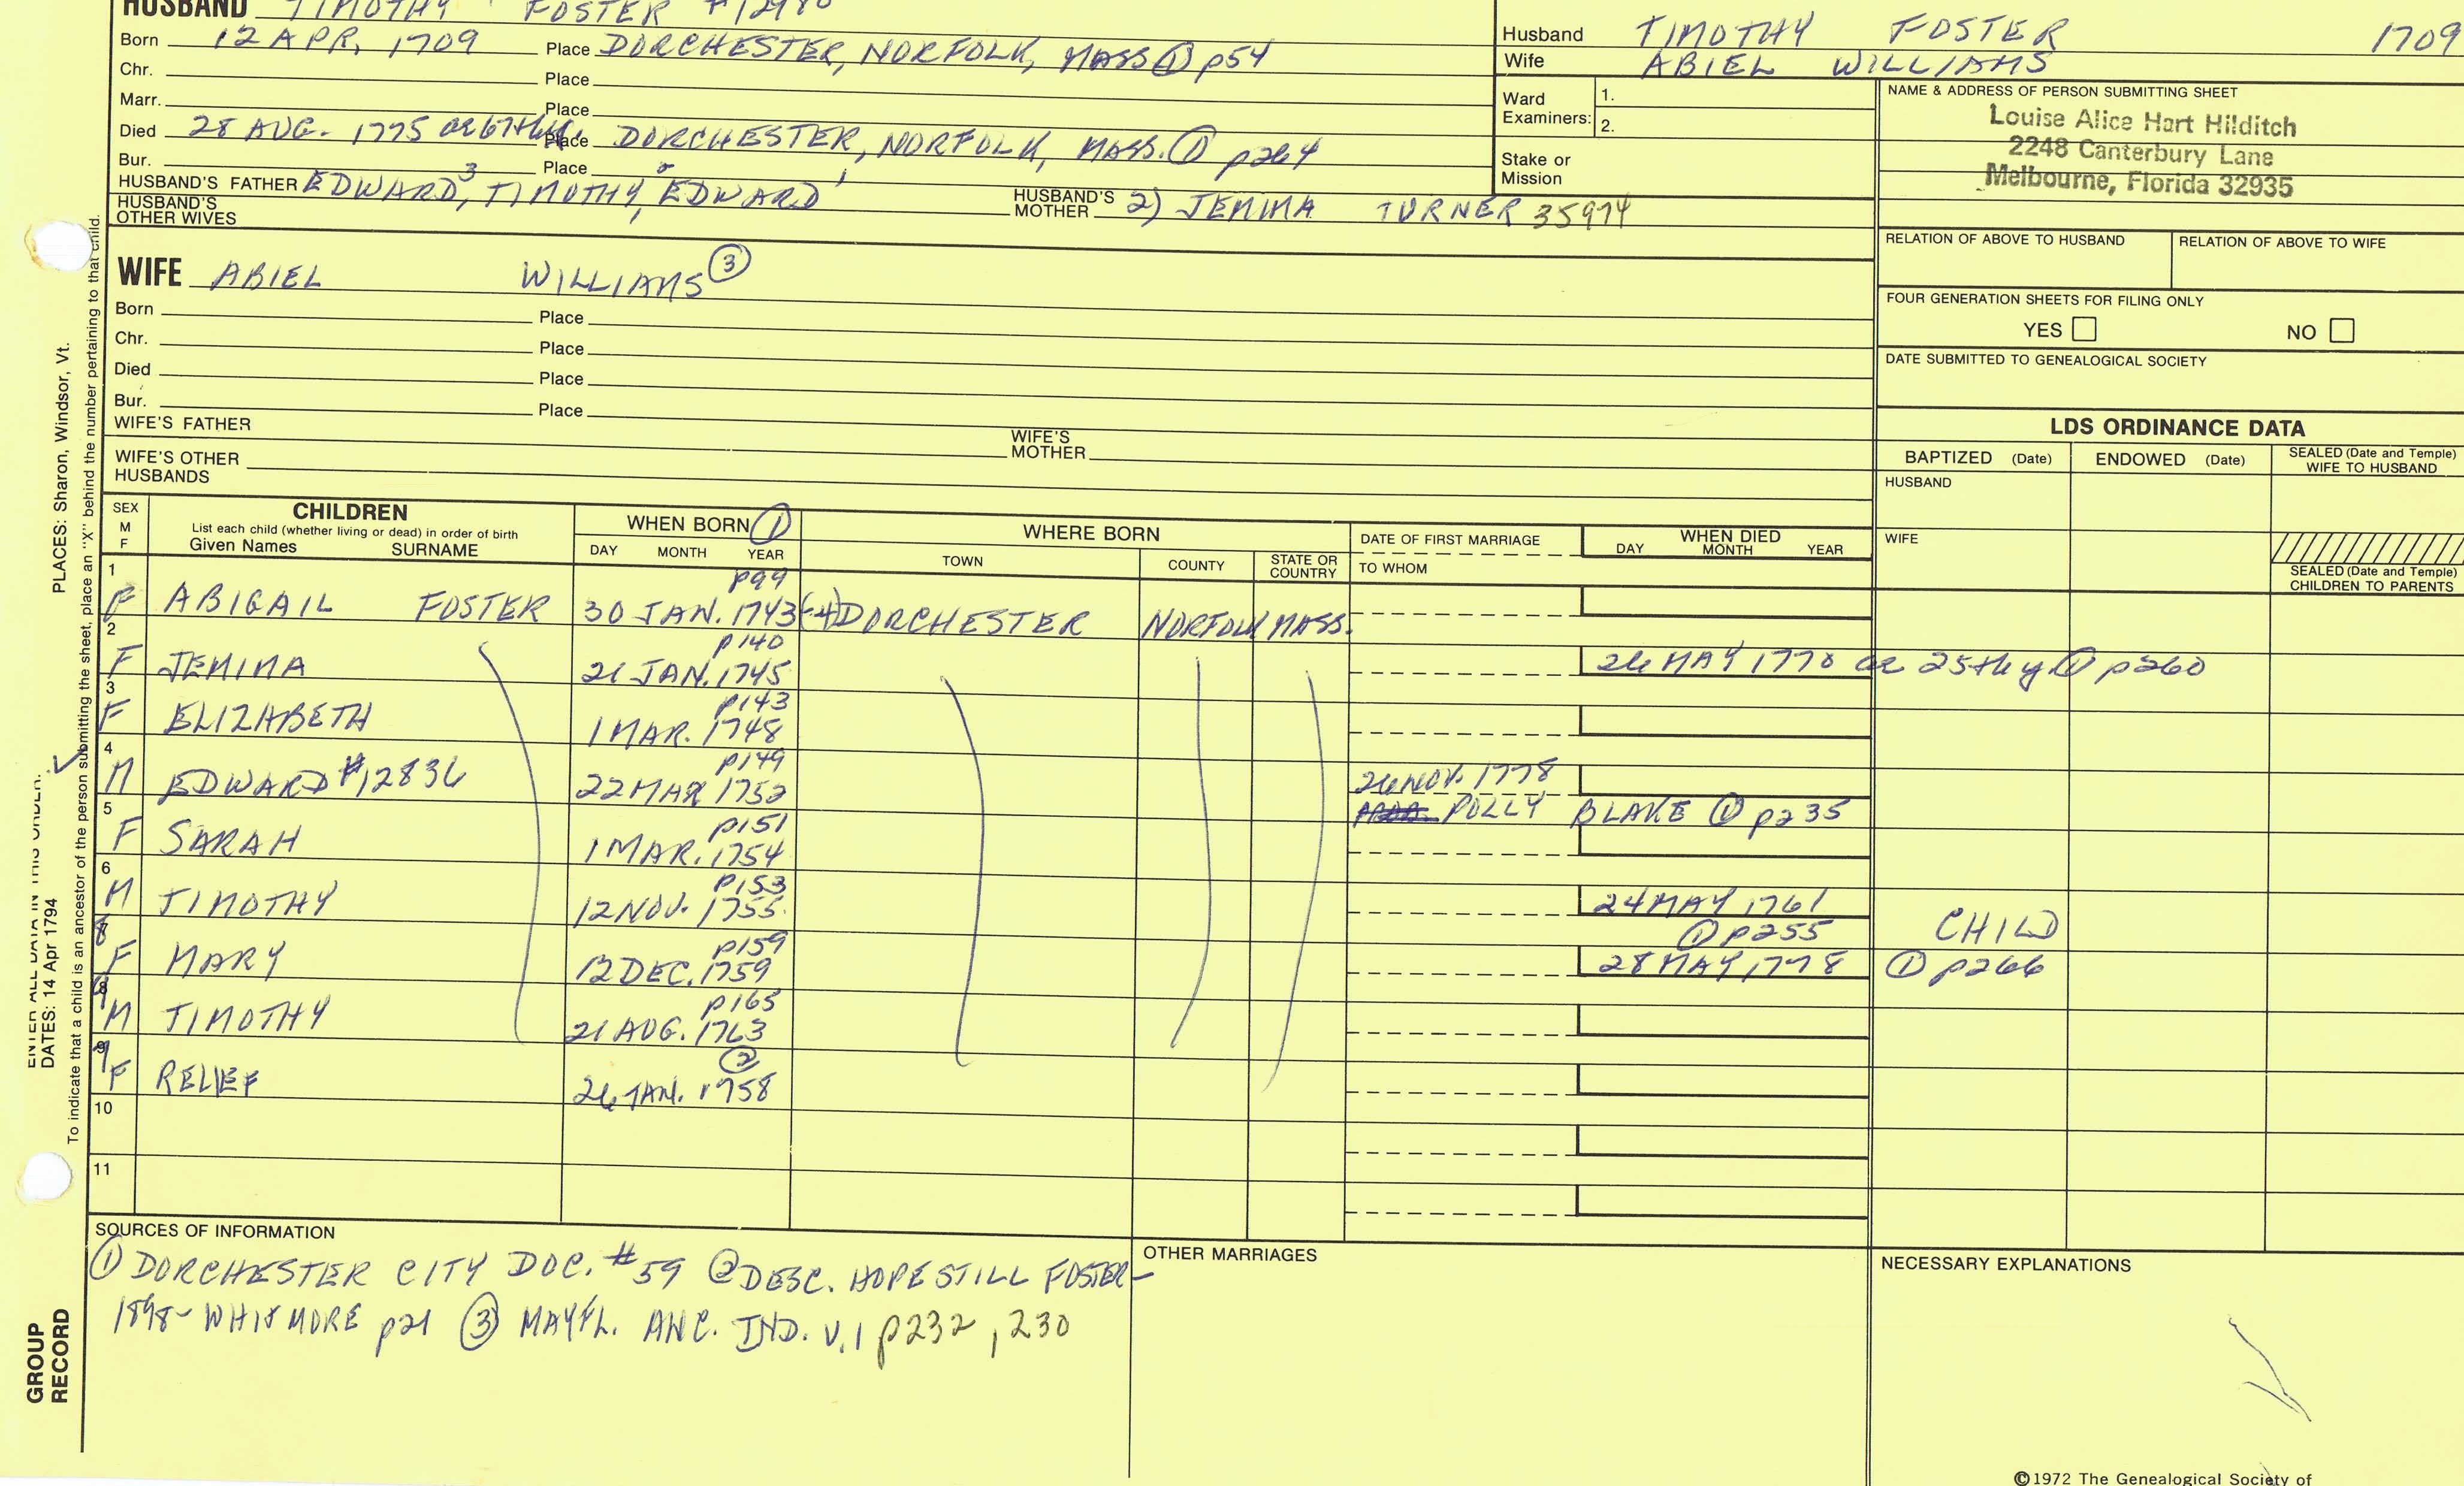 HUSBAND TIMOTHY FOSTER #12980
Born 12 APR, 1709 Place DORCHESTER, NORFOLK, MASS ① p54
Chr. Place
Marr. Place
Died 28 AUG. 1775 OR 67thy. Place DORCHESTER, NORFOLK, MASS. ① p264
Bur. Place
HUSBAND'S FATHER EDWARD³, TIMOTHY², EDWARD¹ HUSBAND'S MOTHER 2) JEMIMA TURNER 35974
HUSBAND'S OTHER WIVES
Husband TIMOTHY FOSTER 1709
Wife ABIEL WILLIAMS
Ward Examiners: 1.
2.
Stake or Mission
NAME & ADDRESS OF PERSON SUBMITTING SHEET
Louise Alice Hart Hilditch
2248 Canterbury Lane
Melbourne, Florida 32935
RELATION OF ABOVE TO HUSBAND RELATION OF ABOVE TO WIFE
FOUR GENERATION SHEETS FOR FILING ONLY
YES NO
DATE SUBMITTED TO GENEALOGICAL SOCIETY
WIFE ABIEL WILLIAMS ③
Born Place
Chr. Place
Died Place
Bur. Place
WIFE'S FATHER WIFE'S MOTHER
WIFE'S OTHER HUSBANDS
LDS ORDINANCE DATA
BAPTIZED (Date) ENDOWED (Date) SEALED (Date and Temple) WIFE TO HUSBAND
HUSBAND
WIFE
SEALED (Date and Temple) CHILDREN TO PARENTS
SEX M F
CHILDREN
List each child (whether living or dead) in order of birth
Given Names SURNAME
WHEN BORN ①
DAY MONTH YEAR
WHERE BORN
TOWN COUNTY STATE OR COUNTRY
DATE OF FIRST MARRIAGE
TO WHOM
WHEN DIED
DAY MONTH YEAR
1 p99
F ABIGAIL FOSTER 30 JAN. 1743(-4) DORCHESTER NORFOLK MASS.
2 p140
F JEMIMA 21 JAN. 1745 26 MAY 1770 OR 25thy ① p260
3 p143
F ELIZABETH 1 MAR. 1748
4 p149
M EDWARD #12836 22 MAR 1752 26 NOV. 1778
POLLY BLAKE ① p235
5 p151
F SARAH 1 MAR. 1754
6 p153
M TIMOTHY 12 NOV. 1755 24 MAY 1761
① p255 CHILD
7 p159
F MARY 12 DEC. 1759 28 MAY 1778 ① p266
8 p165
M TIMOTHY 21 AUG. 1763
9 ②
F RELIEF 26 JAN. 1758
10
11
SOURCES OF INFORMATION
① DORCHESTER CITY DOC. #59 ② DESC. HOPESTILL FOSTER-
1898- WHITMORE p21 ③ MAYFL. ANC. IND. V.1 p232, 230
OTHER MARRIAGES
NECESSARY EXPLANATIONS
©1972 The Genealogical Society of
ENTER ALL DATA IN THIS ORDER:
DATES: 14 Apr 1794
PLACES: Sharon, Windsor, Vt.
To indicate that a child is an ancestor of the person submitting the sheet, place an "X" behind the number pertaining to that child.
GROUP RECORD